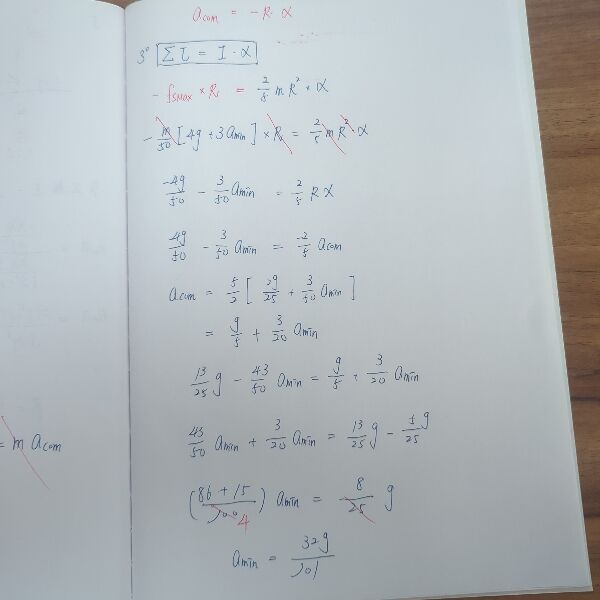 a_com = -R·α
3° Στ = I·α
-f_smax × R = 2/5 mR²·α
-m/50 [4g + 3a_min] × R = 2/5 mR²α
-4g/50 - 3/50 a_min = 2/5 Rα
-4g/50 - 3/50 a_min = -2/5 a_com
a_com = 5/2 [2g/25 + 3/50 a_min]
= g/5 + 3/20 a_min
13/25 g - 43/50 a_min = g/5 + 3/20 a_min
= m a_com
43/50 a_min + 3/20 a_min = 13/25 g - 5/25 g
(86+15/100) a_min = 8/25 g
4
a_min = 32g/101